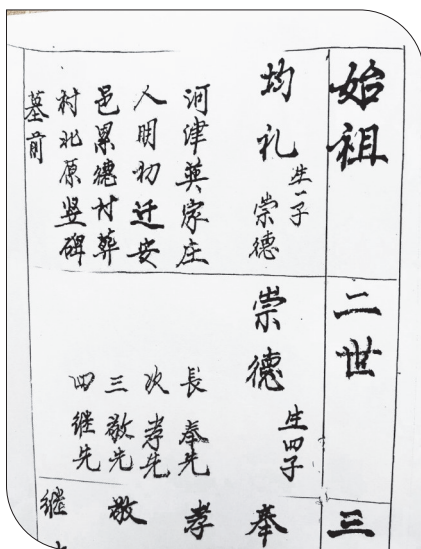 始祖
均礼
生一子
崇德
河津英家庄
人明初迁安
邑累德村葬
村北原竖碑
墓前
二世
崇德
生四子
长 奉先
次 孝先
三 敬先
四 继先
三
奉
孝
敬
继